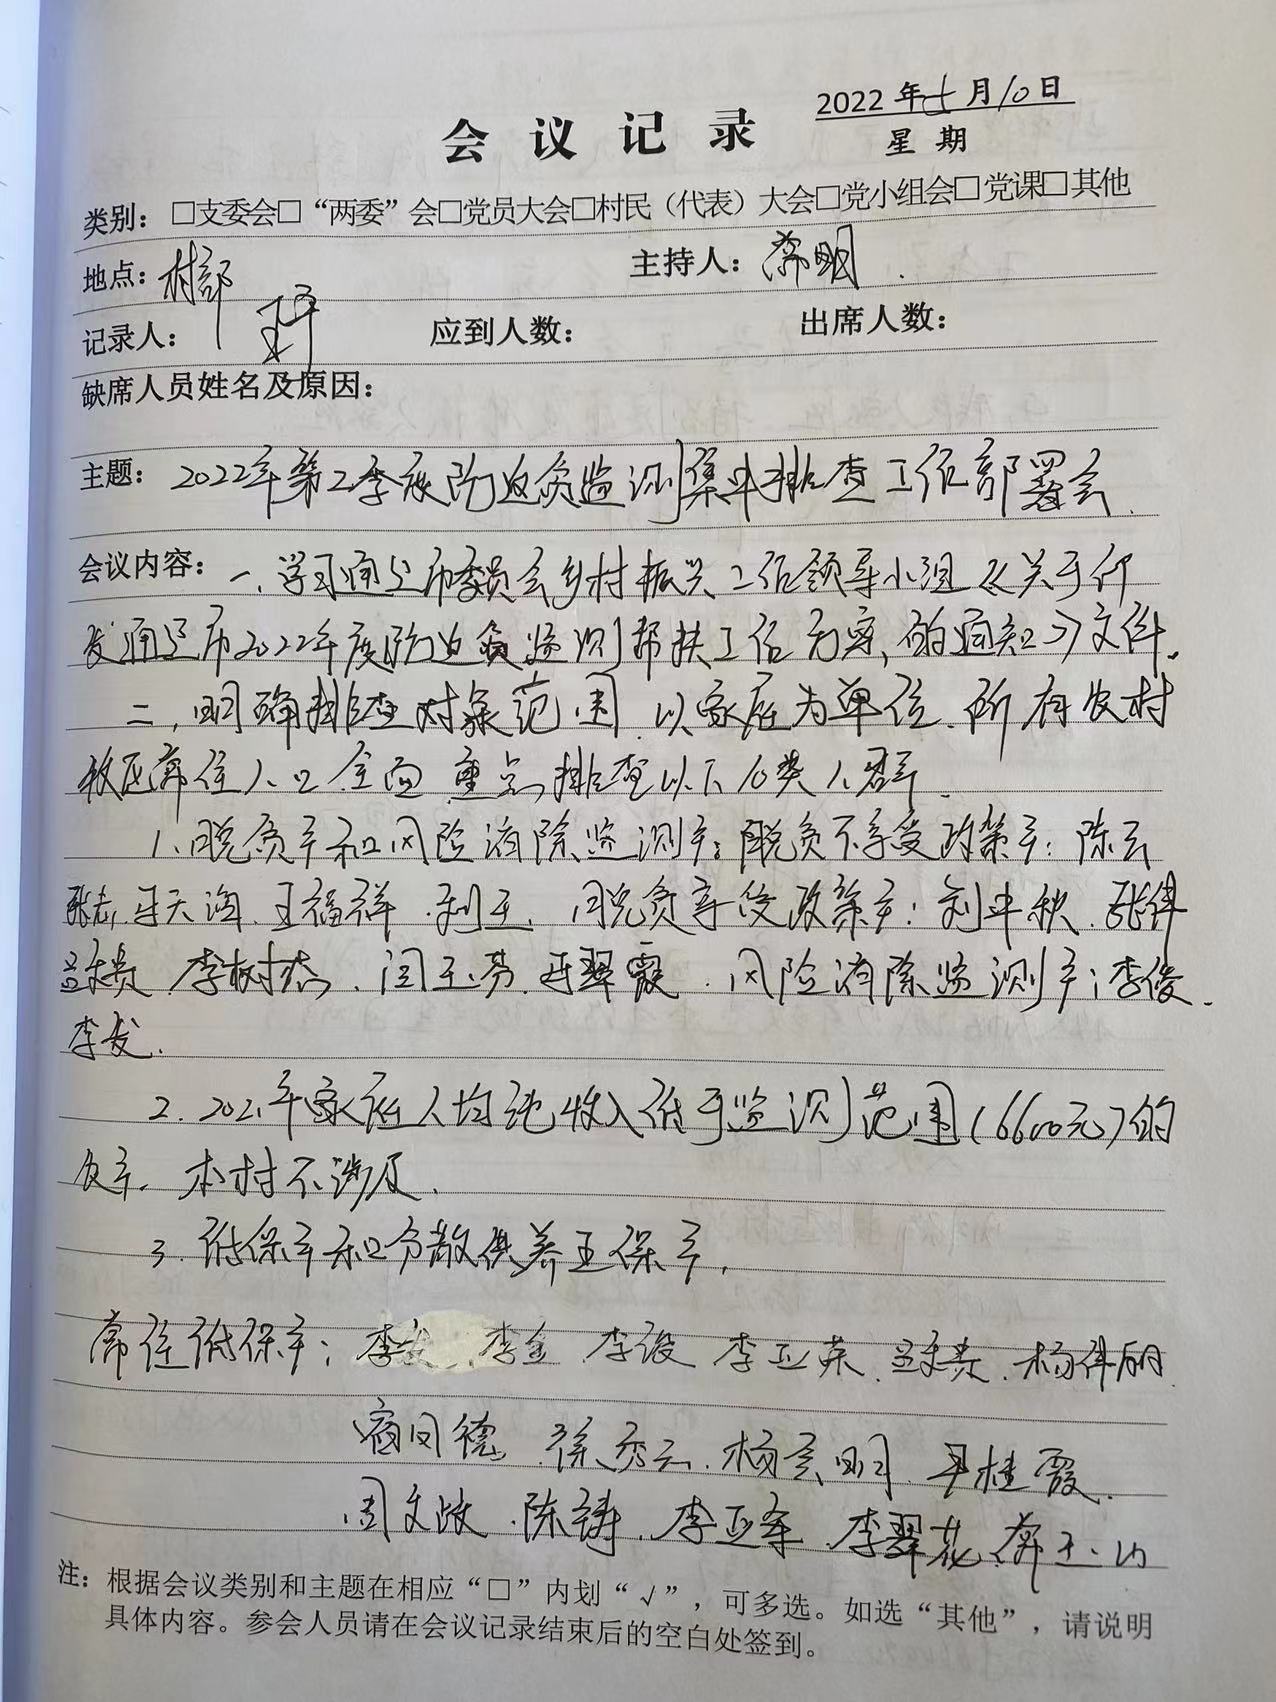 2022年5月10日
会议记录
星期
类别：□支委会□“两委”会□党员大会□村民（代表）大会□党小组会□党课□其他
地点：村部 主持人：常明
记录人： 应到人数： 出席人数：
缺席人员姓名及原因：
主题：2022年第2季度防返贫监测集中排查工作部署会.
会议内容：一、学习通辽市委员会乡村振兴工作领导小组《关于印
发通辽市2022年度防返贫监测帮扶工作方案的通知》文件。
二，明确排查对象范围.以家庭为单位.所有农村
牧区常住人口全面重点排查以下10类人群.
1、脱贫户和风险消除监测户：脱贫不享受政策户：陈云
张志,马天海.王福祥.刘玉.脱贫享受政策户：刘中秋.张伟
李树杰、闫玉芬.王翠霞.风险消除监测户：李俊.
李发.
2.2021年家庭人均纯收入低于监测范围(6600元)的
农户.本村不涉及.
3.低保户和分散供养五保户,
常住低保户：李发 李金 李俊 李亚荣. 杨伟丽
凤德 徐秀云.杨亮明.桂霞.
周文 .陈涛.李亚军.李翠花.
注：根据会议类别和主题在相应“□”内划“√”，可多选。如选“其他”，请说明
具体内容。参会人员请在会议记录结束后的空白处签到。